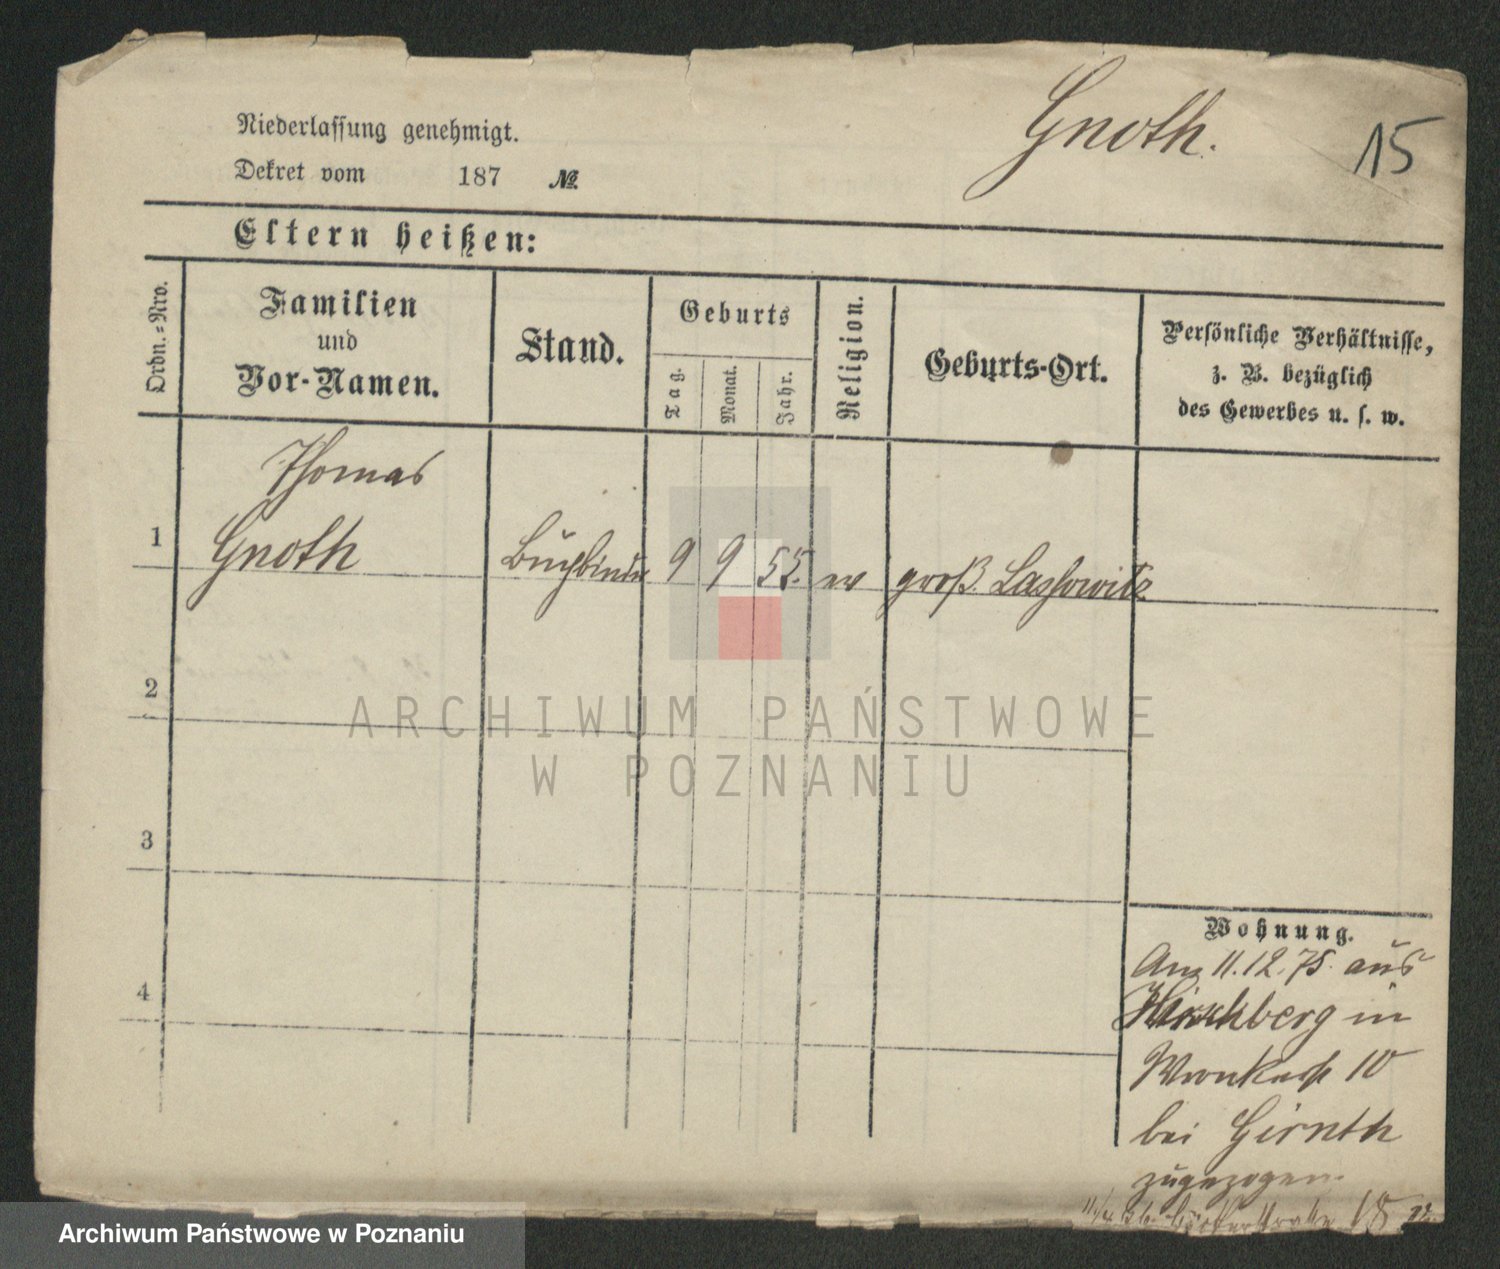 Gnoth.
15
Niederlassung genehmigt.
Dekret vom 187 №
Eltern heißen:
Ordn.=Nro.
Familien
und
Vor-Namen.
Stand.
Geburts
Tag.
Monat.
Jahr.
Religion.
Geburts-Ort.
Persönliche Verhältnisse,
z. B. bezüglich
des Gewerbes u. s. w.
Thomas
1 Gnoth Buchbinder 9 9 55. ev groß. Lassowitz
2
3
4
Wohnung.
Am 11.12.75. aus
Hirschberg in
10
bei Girnth
zugezogen.
ARCHIWUM PAŃSTWOWE
W POZNANIU
Archiwum Państwowe w Poznaniu